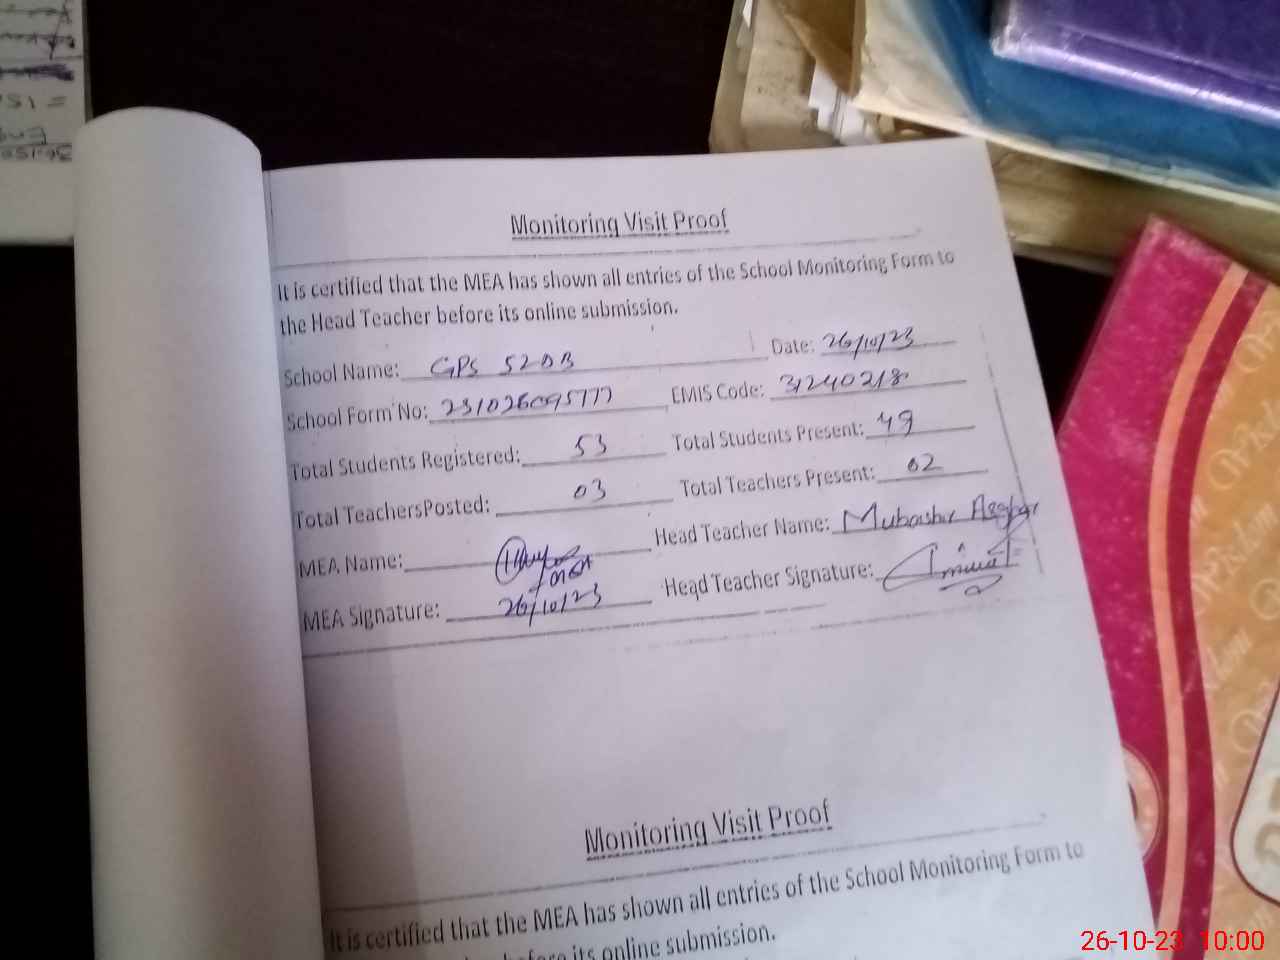 Monitoring Visit Proof
It is certified that the MEA has shown all entries of the School Monitoring Form to
the Head Teacher before its online submission.
School Name: GPS 52DB Date: 26/10/23
School Form No: 231026095777 EMIS Code: 31240218
Total Students Registered: 53 Total Students Present: 49
Total TeachersPosted: 03 Total Teachers Present: 02
MEA Name: Head Teacher Name: Mubashir Asghar
MEA Signature: 26/10/23 Head Teacher Signature:
Monitoring Visit Proof
It is certified that the MEA has shown all entries of the School Monitoring Form to
before its online submission.
26-10-23 10:00